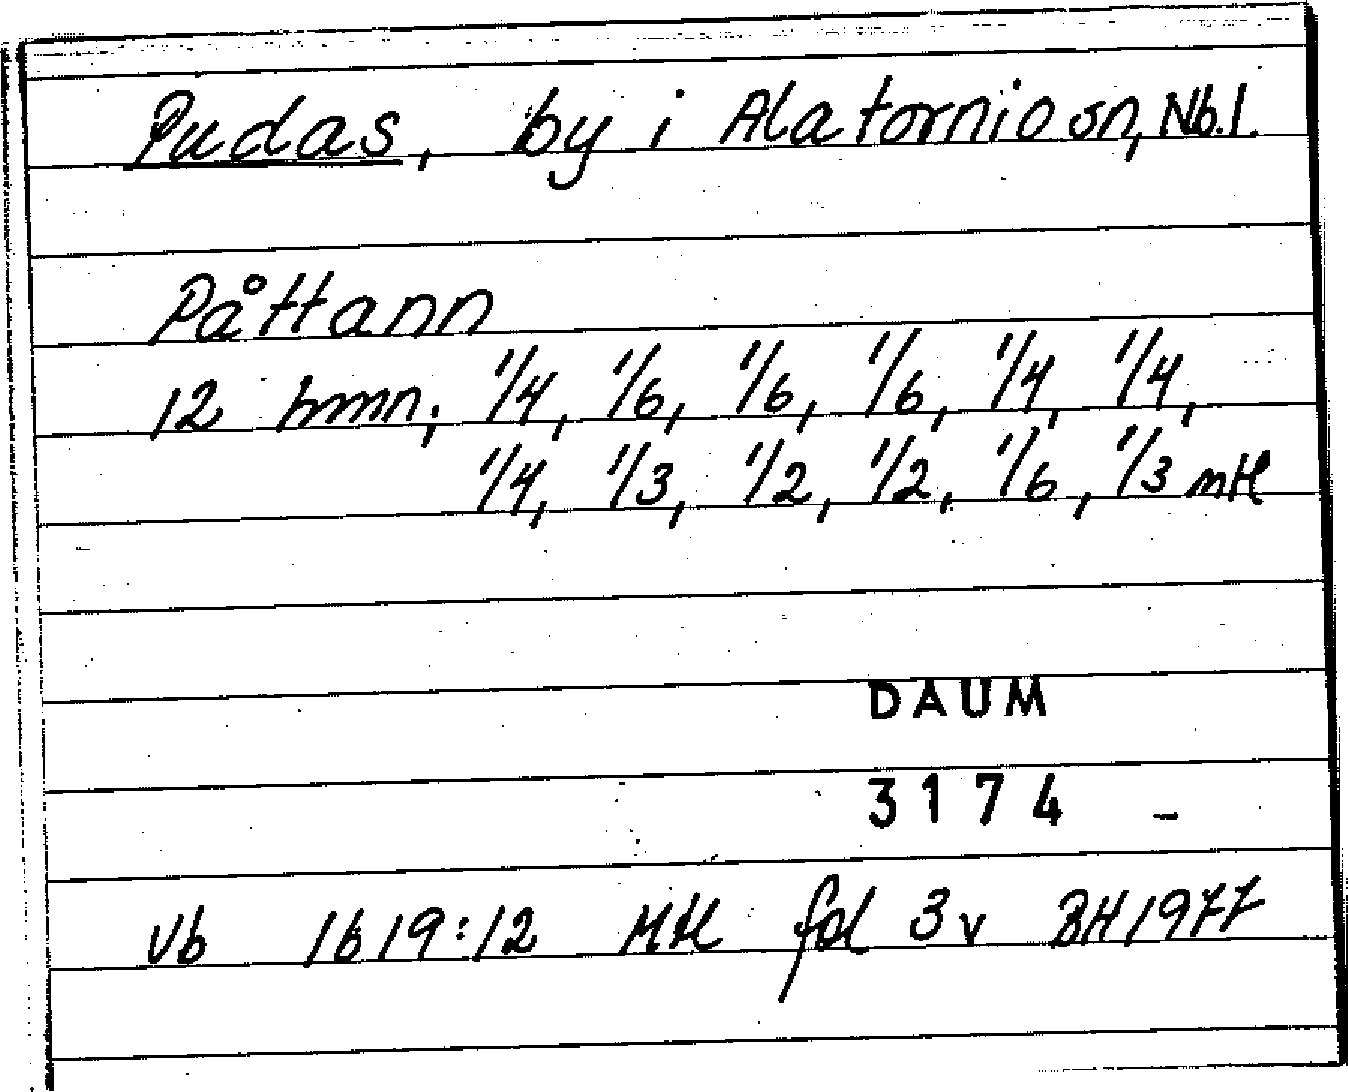 Pudas, by i Alatornio sn, Nb.l.
Påttann
12 hmn; 1/4, 1/6, 1/6, 1/6, 1/4, 1/4,
1/4, 1/3, 1/2, 1/2, 1/6, 1/3 mtl
DAUM
3174 -
Vb 1619:12 Mtl fol 3v BH 1977